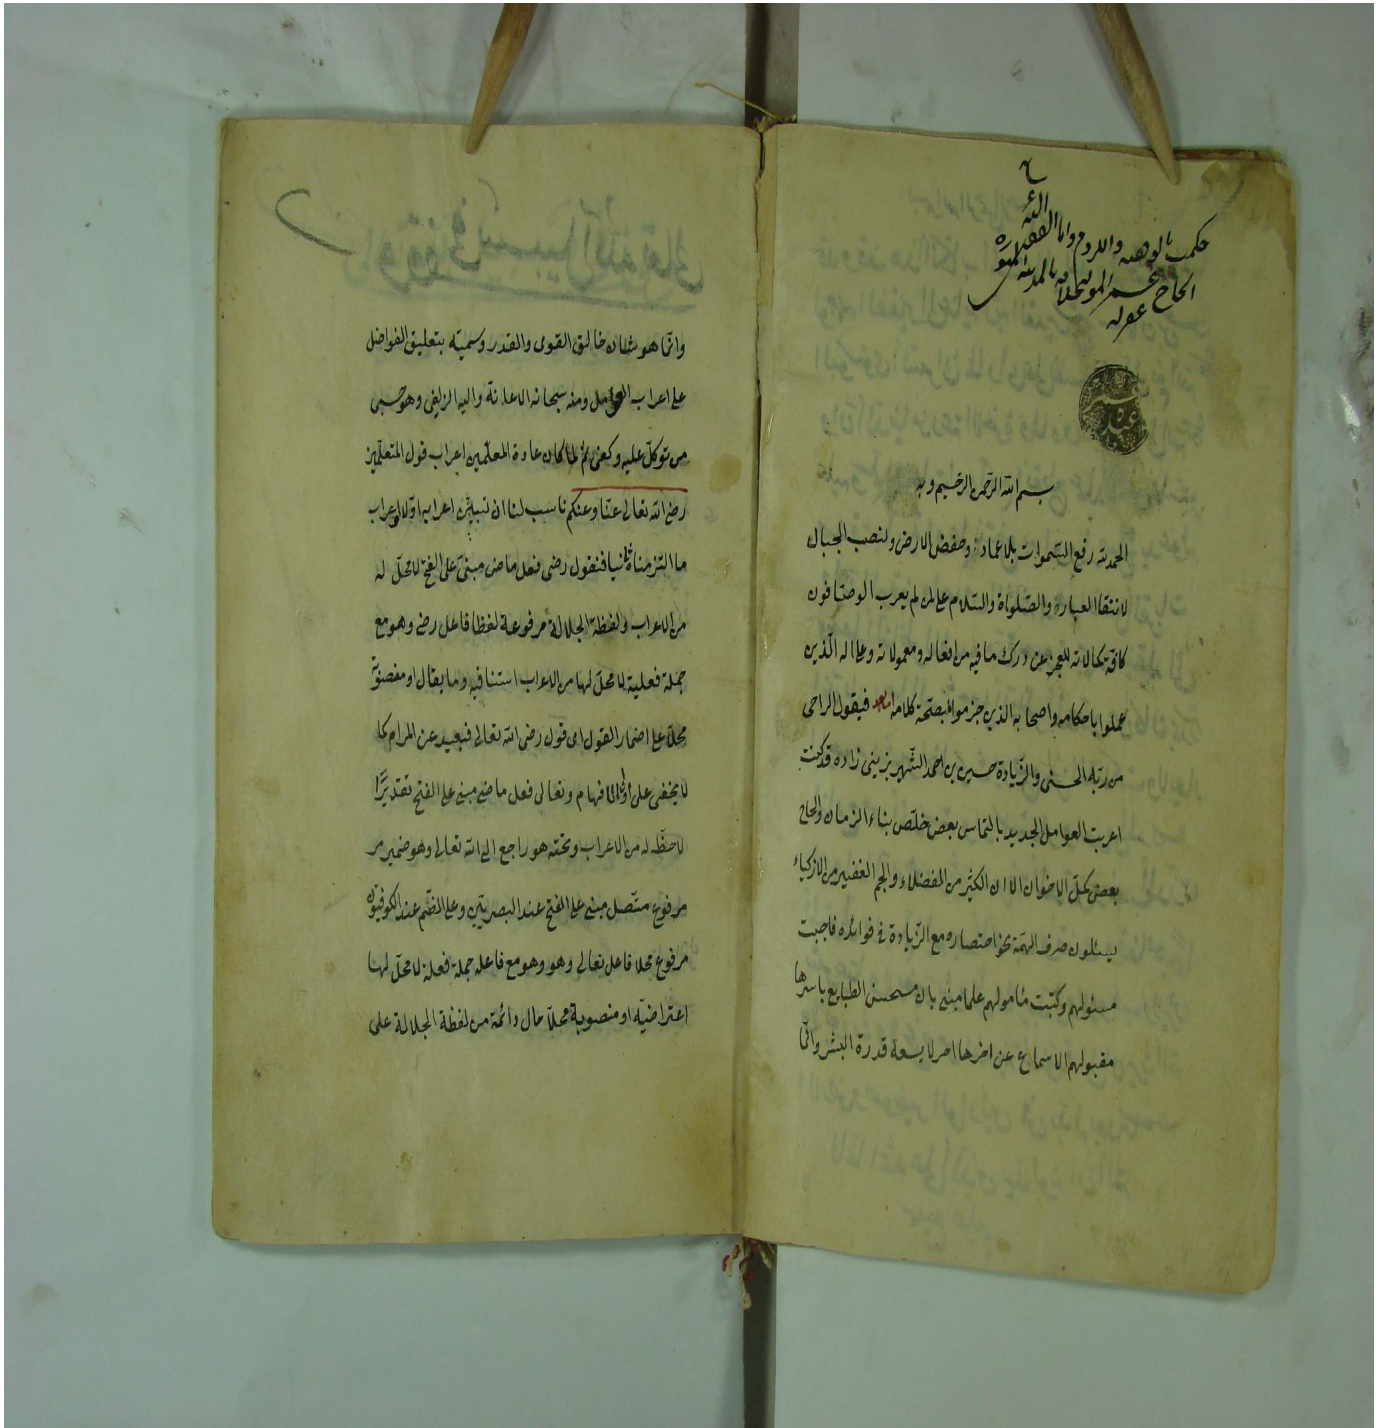 بسم الله الرحمن الرحيم وبه
الحمد لله رفع السموات بلا عماد وخفض الارض ولنصب الجبال
لانتقا العباره والصلواة والسلام على من لم يعرب الوصافون
كافة كمالاته للعجز عن درك ما فيه من افعاله ومعمولاته وعلى اله الذين
عملوا باحكامه واصحابه الذين جزموا بصحة كلامه اما بعد فيقول الراجى
من ربه الحسنى والزيادة حسين بن احمد الشهير بزينى زاده قد كنت
اعربت العوامل الجديد بالتماس بعض خلص بناء الزمان والحاح
بعض كمل الاخوان الا ان الكثير من الفضلاء والجم الغفير من الازكياء
يسئلون صرف الهمة نحو اختصاره مع الزيادة فى فوائده فاجبت
مسئولهم وكتبت مأمولهم علما منى بان مستحسن الطبايع باسرها
مقبولهم الاسماع عن اخرها امر لا يسعه قدرة البشر وانما
وانما هو شان خالق القوى والقدر وسميته بتعليق الفواضل
على اعراب العوامل ومنه سبحانه الاعانة واليه الزلفى وهو حسبى
من توكل عليه وكفى ثم لما كان عادة المعلمين اعراب قول المتعلمين
رضى الله تعالى عنا وعنكم ناسب لنا ان نبين اعرابه اولا واعراب
ما التزمناه ثانيا فنقول رضى فعل ماض مبنى على الفتح لا محل له
من الاعراب ولفظة الجلالة مرفوعة لفظا فاعل رضى وهو مع
جملة فعلية لا محل لها من الاعراب استنافيه وما يقال او منصوبة
محلا على اضمار القول اى قول رضى الله تعالى فبعيد عن المرام كما
لا يخفى على اولى الافهام وتعالى فعل ماضى مبنى على الفتح تقديرا
لا حظ له من الاعراب وتحته هو راجع الى الله تعالى وهو ضمير مر
مرفوع متصل مبنى على الفتح عند البصريين وعلى الضم عند الكوفيون
مرفوع محلا فاعل تعالى وهو وهو مع فاعله جملة فعلة لا محل لها
اعتراضيه او منصوبة محلا حال دائمة من لفظة الجلالة على